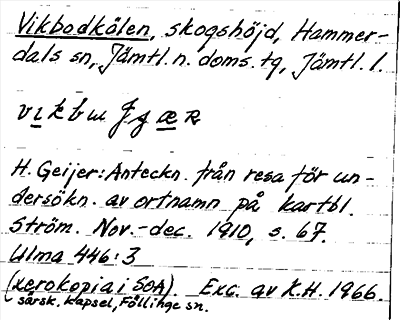 Vikbodkölen, skogshöjd, Hammer-
dals sn, Jämtl. n. doms. tg, Jämtl. l.
H. Geijer: Anteckn. från resa för un-
dersökn. av ortnamn på kartbl.
Ström. Nov.-dec. 1910, s. 67.
Ulma 446:3
(xerokopia i SOA). Exc. av K.H. 1966.
särsk. kapsel, Föllinge sn.